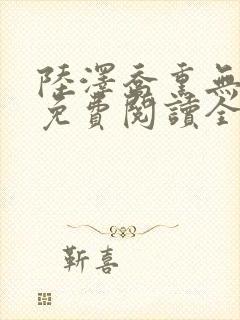 陸澤喬熏無
免費閱讀全
靳喜